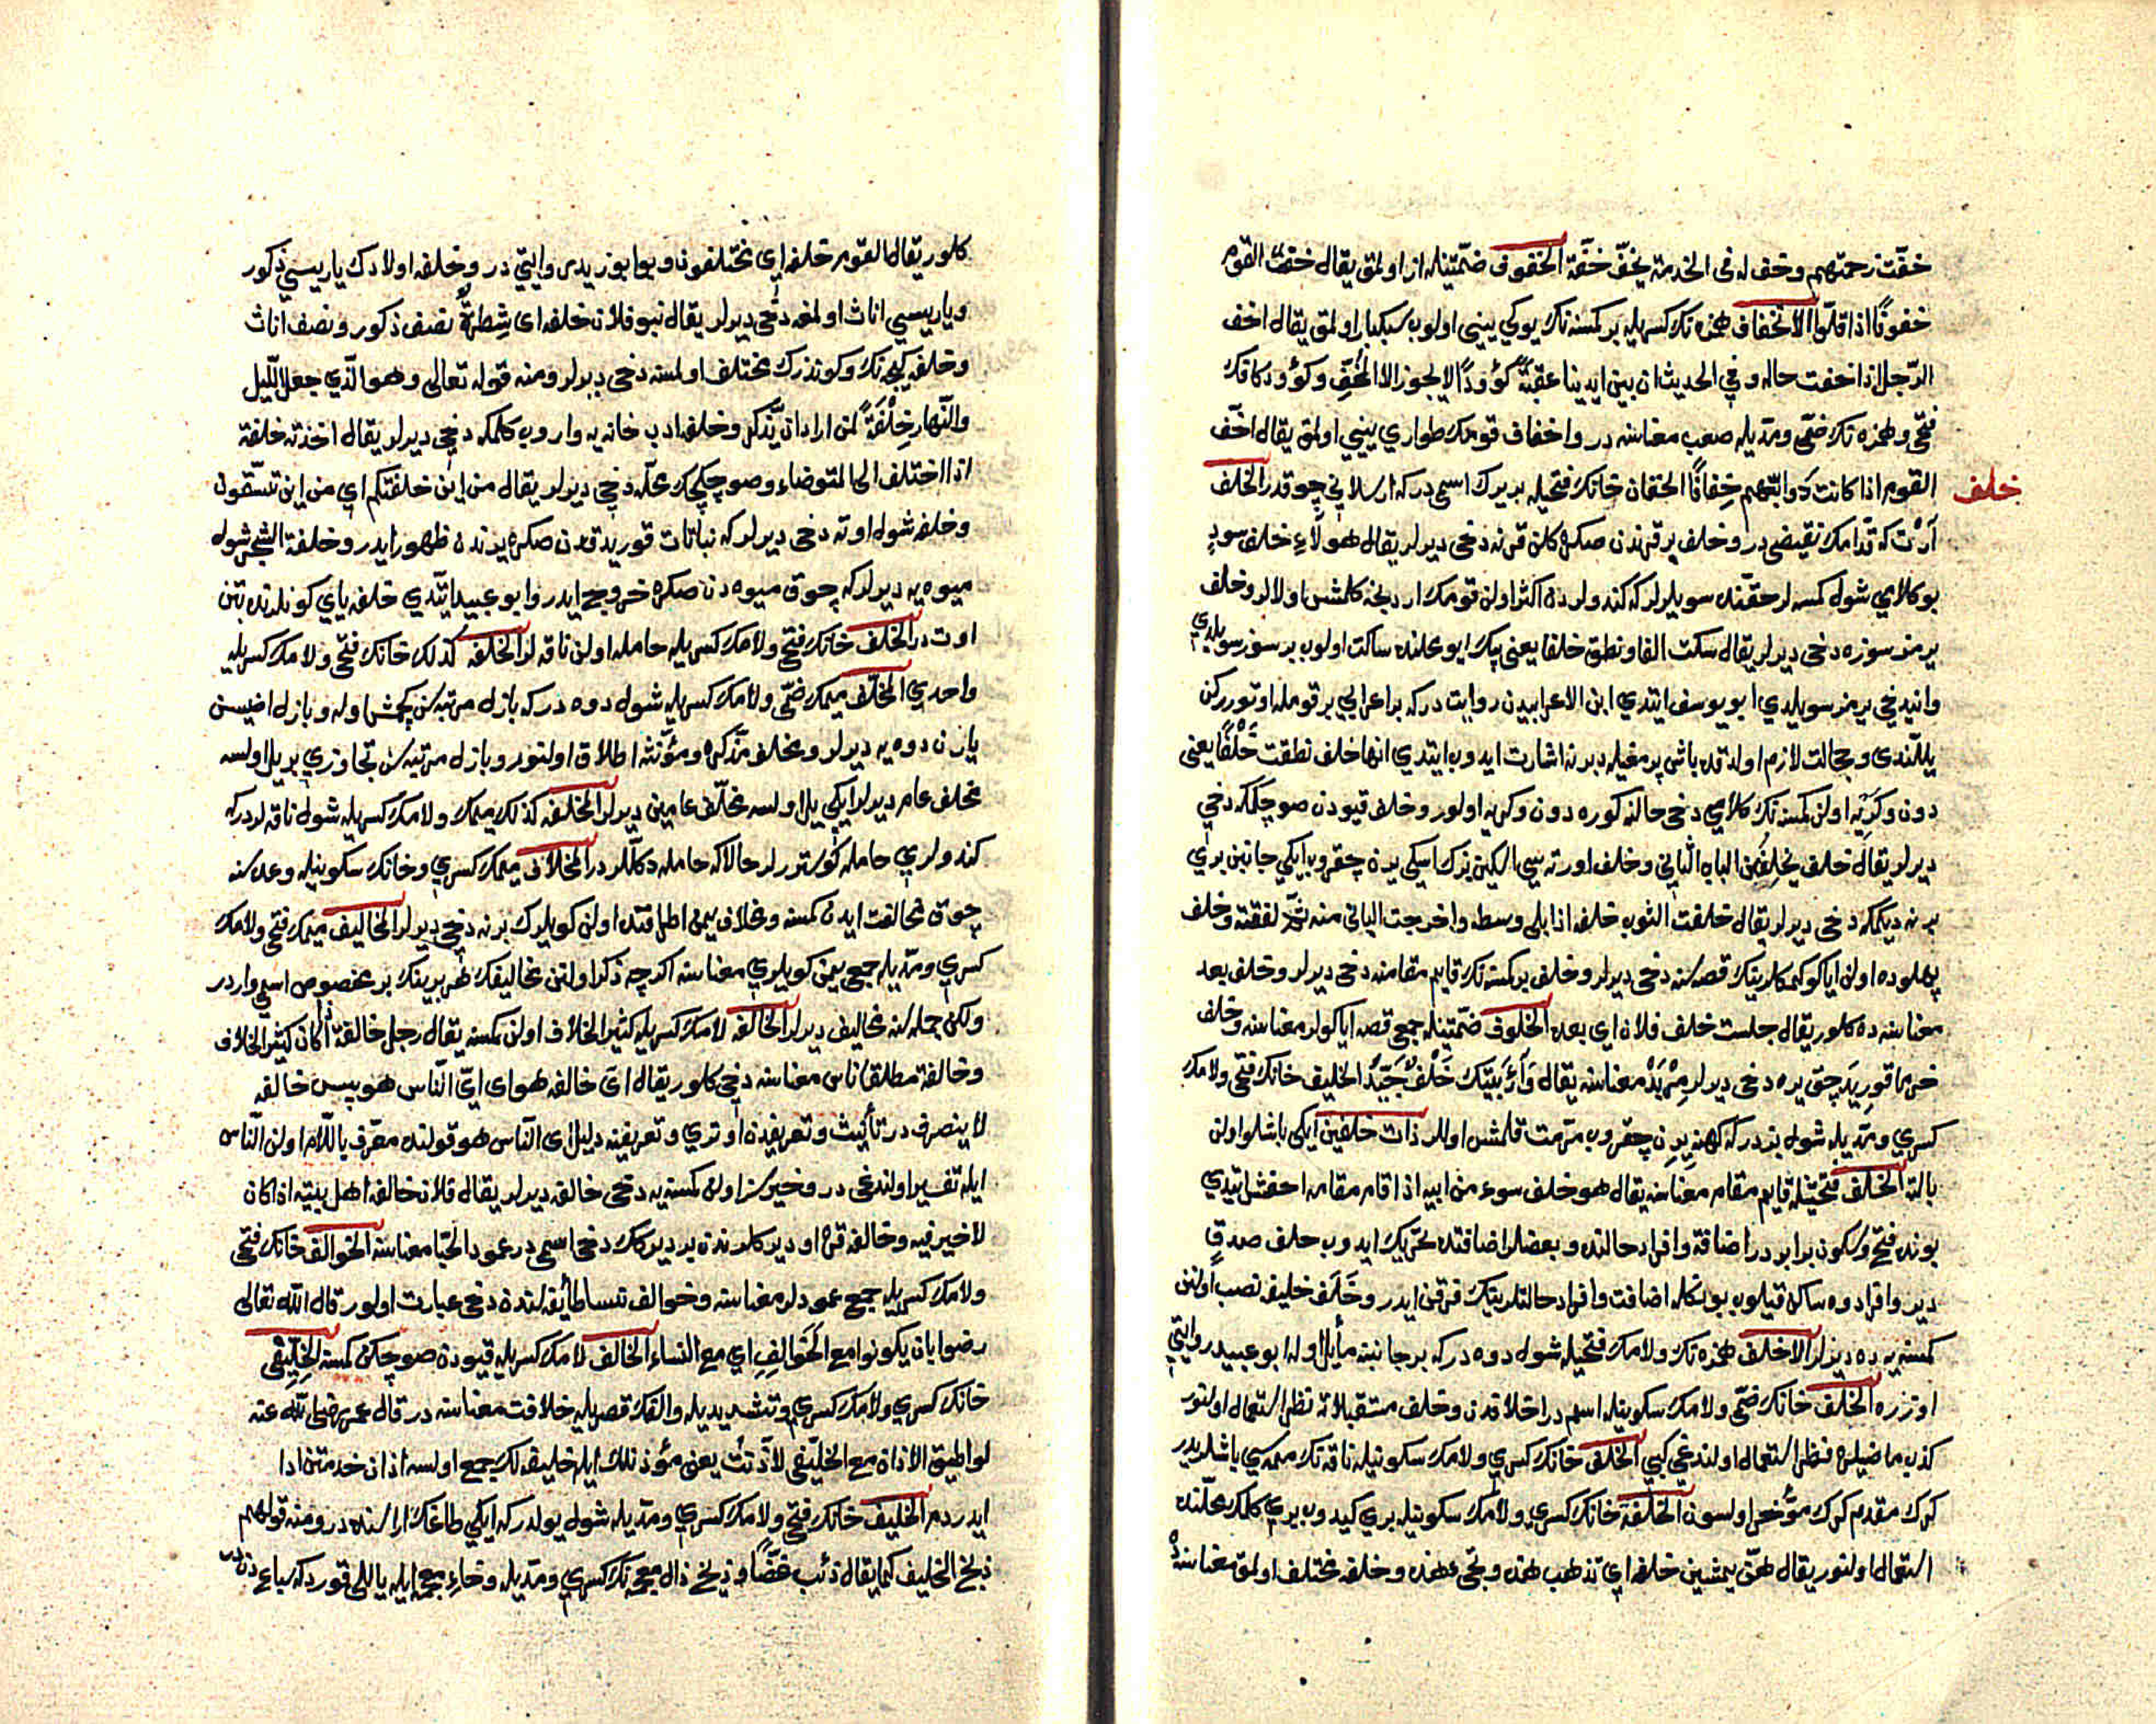 خفّت زحمتهم وخف له فى الخدمة يخفّ خفّة الخفوف ضمّتينله از اولمق يقال خفّ القوم
خفوفًا اذا قلّوا الاخفاف همزه نك كسريله بر كمسنه نك يوكي ييني اولوب سبكبار اولمق يقال اخف
الرّجل اذا خفت حاله و في الحديث ان بين ايدينا عقبةً كؤودًا لا يجوزها الا المُخِفّ وكؤود كافك
فتحى وهمزه نك ضمّى ومدّيله صعب معناسنه در واخفاف قومك طواري ييني اولمق يقال اخفّ
القوم اذا كانت دوابّهم خِفافًا الخفان خانك فتحيله بر يرك اسمى در كه ارسلاني چوقدر الخلف
خلف
آرْت كه قدّامك نقيضى در وخلف بر قرندن صكره كلن قرنه دخى ديرلر يقال هؤلاءِ خلف سوءٍ
بو كلامي شول كمسه لر حقّنده سويلرلر كه كندولردن اكثر اولن قومك اردنجه كلمش اولالر وخلف
يرمز سوزه دخى ديرلر يقال سكت الفا ونطق خلفا يعنى بيك ايو محلنده ساكت اولوب بر سوز سويلدي
وانى دخي يرمز سويلدي ابو يوسف ايتدي ابن الاعرابيدن روايت در كه بر اعرابي بر قومله اوتورركن
يللّندى وخجالت لازم اولدقده باش پرمغيله دبرنه اشارت ايدوب ايتدي انها خلف نطقت خَلْفًا يعنى
دون وكريه اولن كمسنه نك كلامي دخى حالنه كوره دون وكريه اولور وخلف قيودن صو چكمكه دخي
ديرلر يقال خلف يخلف من الباب الثاني وخلف اورته سي اسكين بزك اسكي يرن چقروب ايكي جانبن برى
برنه ديكمكه دخى ديرلر يقال خلفت الثوب خلفه اذا بلى وسطه واخرجت البالى منه ثمّ لفقته وخلف
پهلوده اولن اياكو كمكلرينك قصه سنه دخى ديرلر وخلف بر كمسنه نك قايم مقامنه دخى ديرلر وخلف بعد
معناسنه ده كلور يقال جلست خلف فلان اي بعده الخلوف ضمّتينله جمعى قصه اياكولر معناسنه وخلف
خرما قوريدجق يره دخى ديرلر مِرْبَدْ معناسنه يقال وَرَآءَ بيتك خَلْفٌ جَيّدٌ الخليف خانك فتحى ولامك
كسري ومدّيله شول بزدر كه كهنه يرن چقروب مرّمت قلمش اوللر ذات خلفين ايكى باشلو اولن
بالته الخلف فتحتيله قايم مقام معناسنه يقال هو خلف سوء من ابيه اذا قام مقامه اخفش ايتدي
بونده فتح وسكون برابر در اضافة وافراد حالنده وبعضلر اضافتده تحريك ايدوب خلف صدقٍ
دير وافرادوه ساكن قيلوب بونكله اضافت وافراد حالتلرينك فرقن ايدر وخَلَف خليفه نصب اولنن
كمسنه يه ده ديرلر الاخلف همزه نك ولامك فتحيله شول دوه در كه بر جانبنه مأيل اوله ابو عبيد روايتي
اوزره الخلف خانك ضمّى ولامك سكونيله اسم در اخلافدن وخلف مستقبلاته نظرا استعمال اولنور
كذب ماضيلره نظرا استعمال اولندغي كبي الخلف خانك كسري ولامك سكونيله ناقه نك ممه سي باشلريدر
كرك مقدم كرك مؤخر اولسون الخلفة خانك كسري ولامك سكونيله بري كيدوب بري كلمك محلّنده
استعمال اولنور يقال هنّ يمشين خلفه اي تذهب هذه وتجى هذه وخلفه مختلف اولمق معناسنه ده
كلور يقال القوم خلفه اي مختلفون وبو ابو زيدن روايتي در وخلفه اولادك ياريسي ذكور
وياريسي اناث اولمغه دخى ديرلر يقال بنو فلان خلفه اى شِطرةٌ نصف ذكور ونصف اناث
وخلفه كيجه نك وكوندزك مختلف اولمسنه دخى ديرلر ومنه قوله تعالى وهو الّذي جعل اللّيل
والنّهار خِلْفَةً لمن اراد ان يذّكر وخلفه ادب خانه يه واروب كلمكه دخي ديرلر يقال اخذته خلفة
اذا اختلف الى المتوضاء وصو چكجك محلّه دخي ديرلر يقال من اين خلفتكم اي من اين تستقون
وخلفه شول اوته دخى ديرلر كه نباتات قوريدقدن صكره يرندن ظهور ايدر وخلفة الشجر شول
ميوه يه ديرلر كه چوق ميوه دن صكره خروج ايدر وابو عبيد ايتدي خلفه ياي كونلرنده بتن
اوت در الخلف خانك فتحى ولامك كسريله حامله اولن ناقه لر الخلفه كذلك خانك فتحى ولامك كسريله
واحدي المخلف ميمك ضمّى ولامك كسريله شول دوه در كه بازل مرتبه سن كچمش اوله وبازل اضيسن
يارن دوه يه ديرلر ومخلف مذكره ومؤنّثه اطلاق اولنور وبازل مرتبه سن تجاوزي بر ييل اولسه
مخلف عام ديرلر ايكي ييل اولسه مخلف عامين ديرلر المخلفه كذلك ميمك ولامك كسريله شول ناقه لر در كه
كندولري حامله كوسترورلر حالا كه حامله دكللر در المخلاف ميمك كسري وخانك سكونيله وعده سنه
چوق مخالفت ايدن كمسنه ومخلاف يمن اطرافنده اولن كويلرك برنه دخي ديرلر المخاليف ميمك فتحى ولامك
كسري ومدّيله جمعى يمن كويلري معناسنه اكرچه ذكر اولنن مخاليفك هر برينك بر مخصوص اسمى واردر
ولكن جمله سنه مخاليف ديرلر الخالفه لامك كسريله كثير الخلاف اولن كمسنه يقال رجل خالفة اذا كان كثير الخلاف
وخالفة مطلقا ناس معناسنه دخي كلور يقال اىّ خالفه هو اى ايّ النّاس هو پس خالفه
لا ينصرف در تأنيث وتعريفدن اوتري وتعريفنه دليل اى النّاس هو قولنده معرّف باللّام اولن النّاس
ايله تفسير اولندغى در وخيرسز اولن كمسنه يه دخى خالفه ديرلر يقال فلان خالفة اهل بيته اذا كان
لا خير فيه وخالفه قره او ديركلرندن بر ديركك دخى اسمى در عمود الخبا معناسنه الخوالف خانك فتحى
ولامك كسريله جمع عمودلر معناسنه وخوالف نسا طايفه لندن دخى عبارت اولور قال الله تعالى
رضوا بان يكونوا مع الخَوَالِفِ اي مع النساء الخالف لامك كسريله قيودن صو چكن كمسنه الخِلّيفى
خانك كسري ولامك كسري وتشديديله والفك قصريله خلافت معناسنه در قال عمر رضى الله عنه
لو اطيق الاذان مع الخلّيفى لأذّنتُ يعنى مؤذنلك ايله خليفه لك جمع اولسه اذان خدمتن ادا
ايدردم الخليف خانك فتحى ولامك كسري ومدّيله شول يولدر كه ايكي طاغك اراسنده در ومنه قولهم
ذيخ الخليف كما يقال ذئب غضًا وذيخ ذال معجمه نك كسري ومدّيله وخاء معجمه ايله ياللى قورد كه سباع دن در